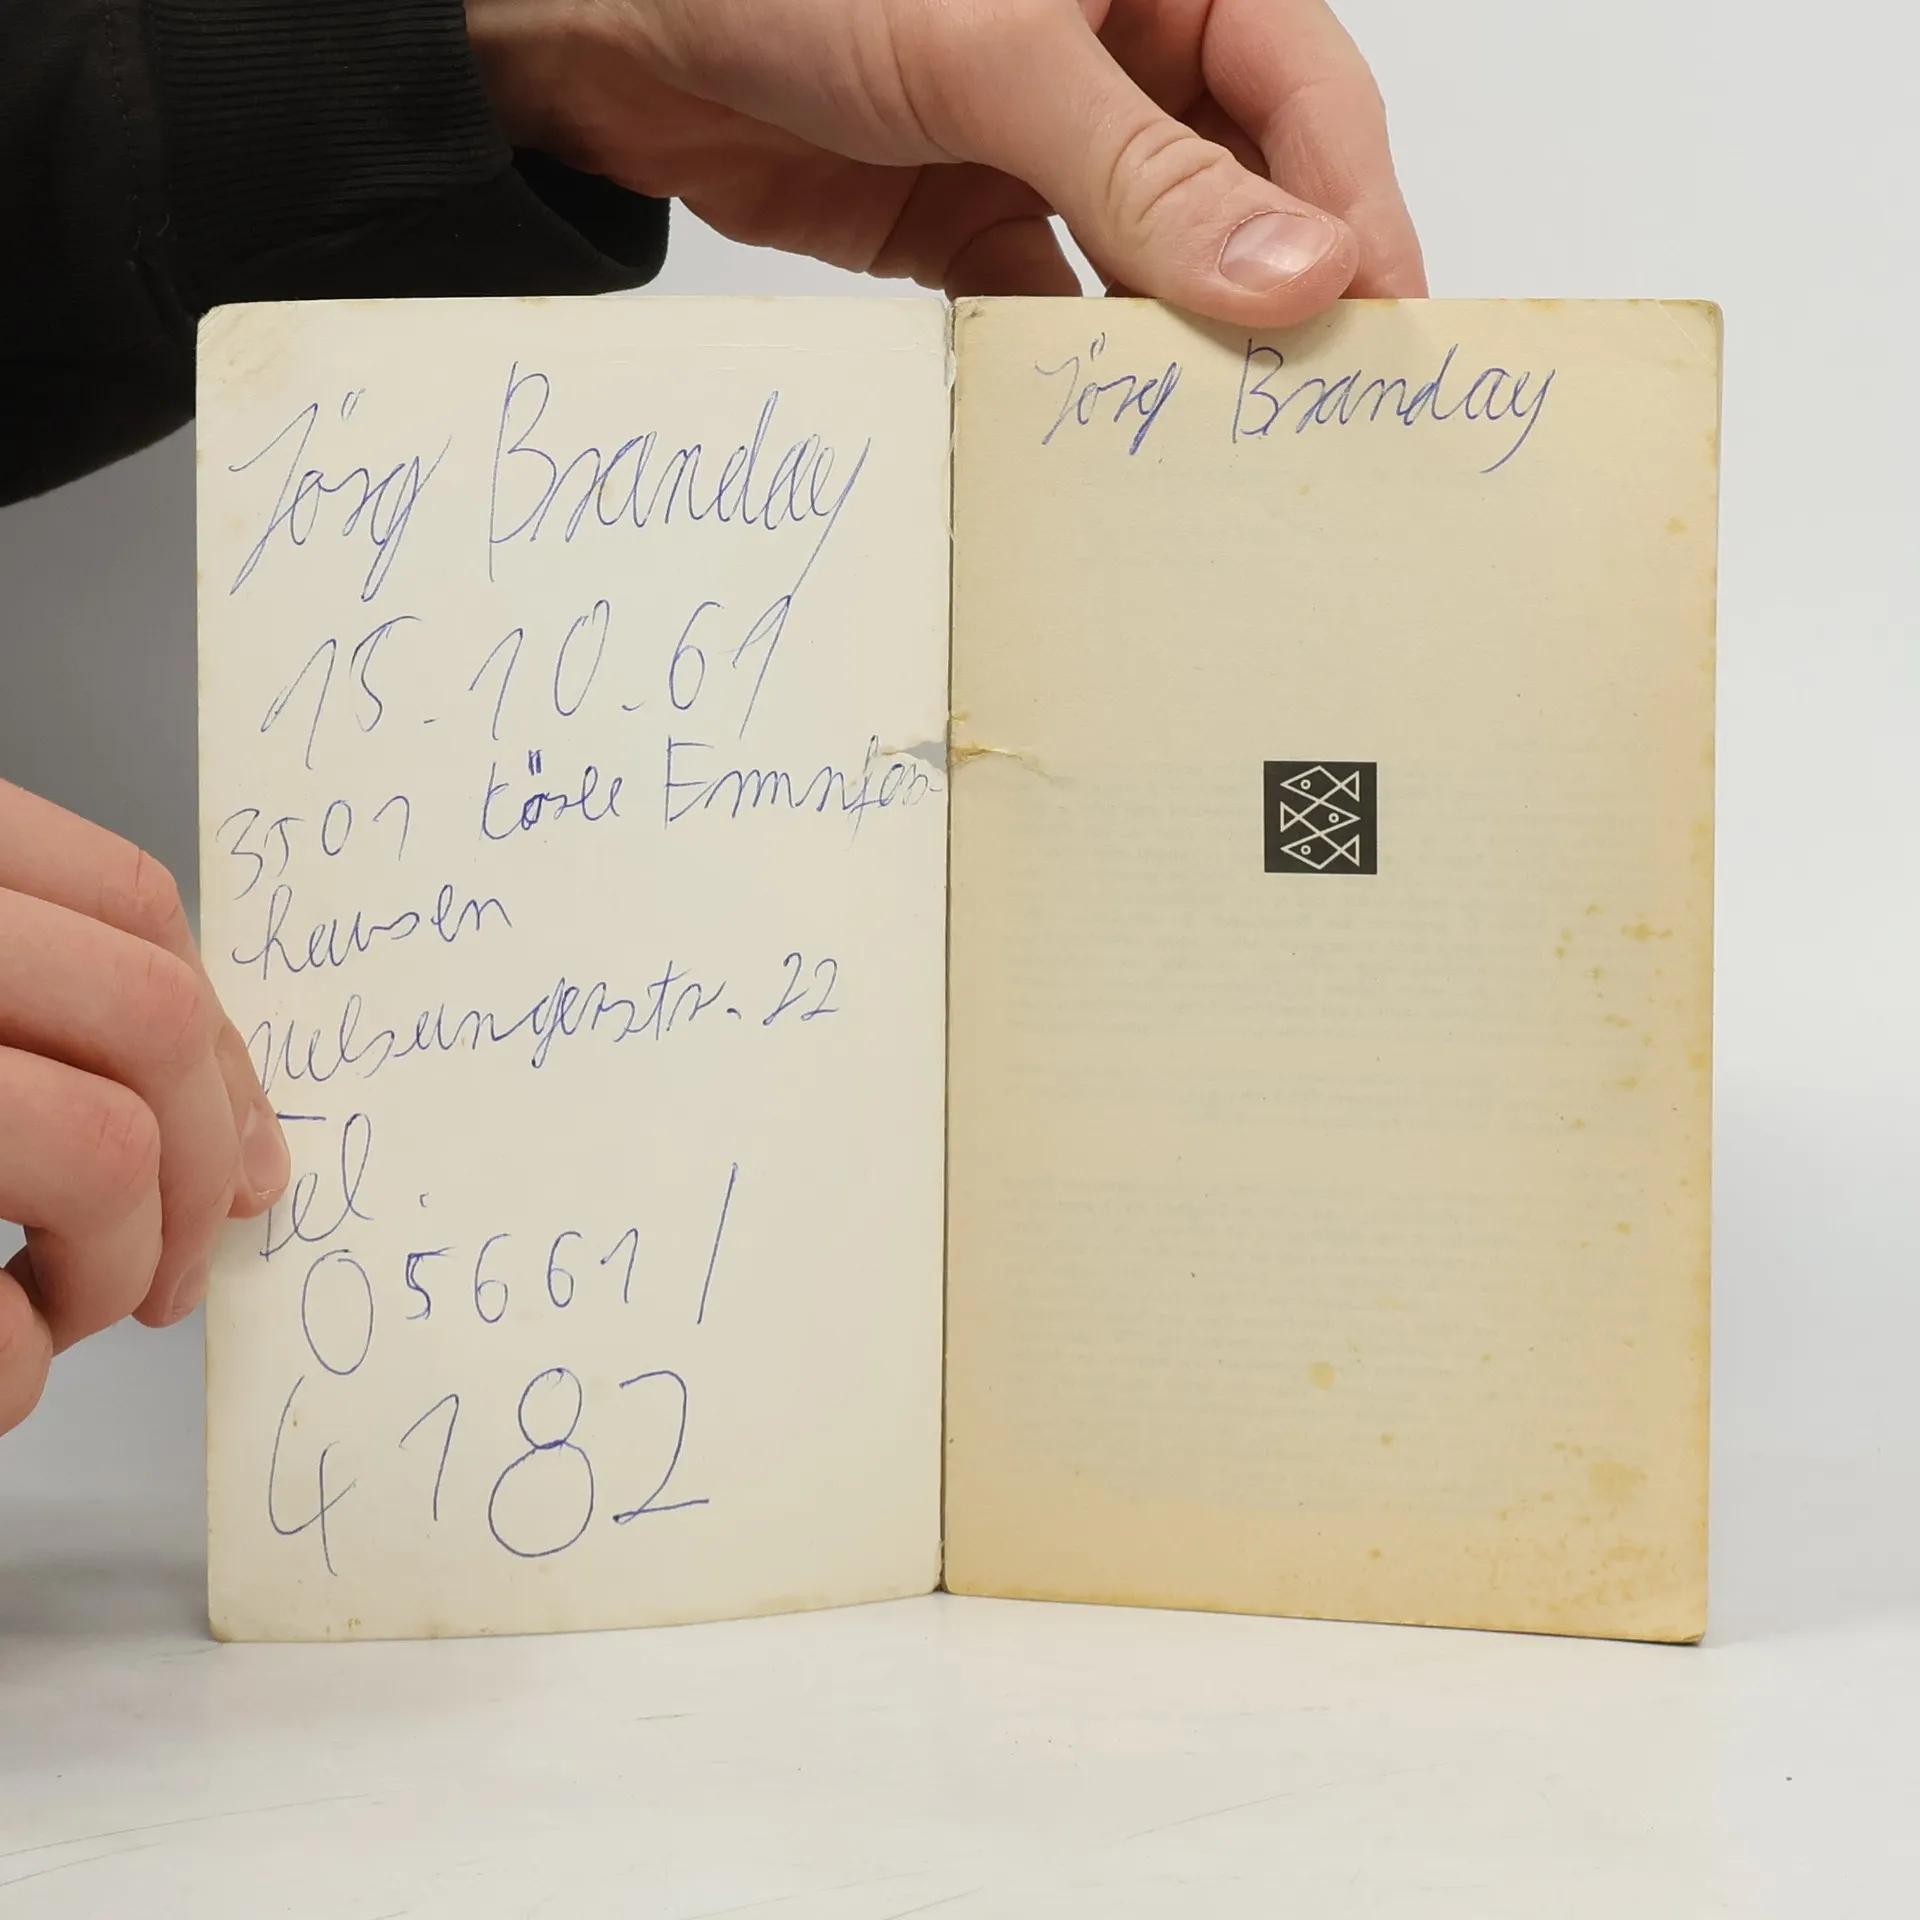 Jörg Branday
15.10.61
3501 Körle Emmnfas-
hausen
melsungerstr. 22
Tel.
05661/
4182
Jörg Branday